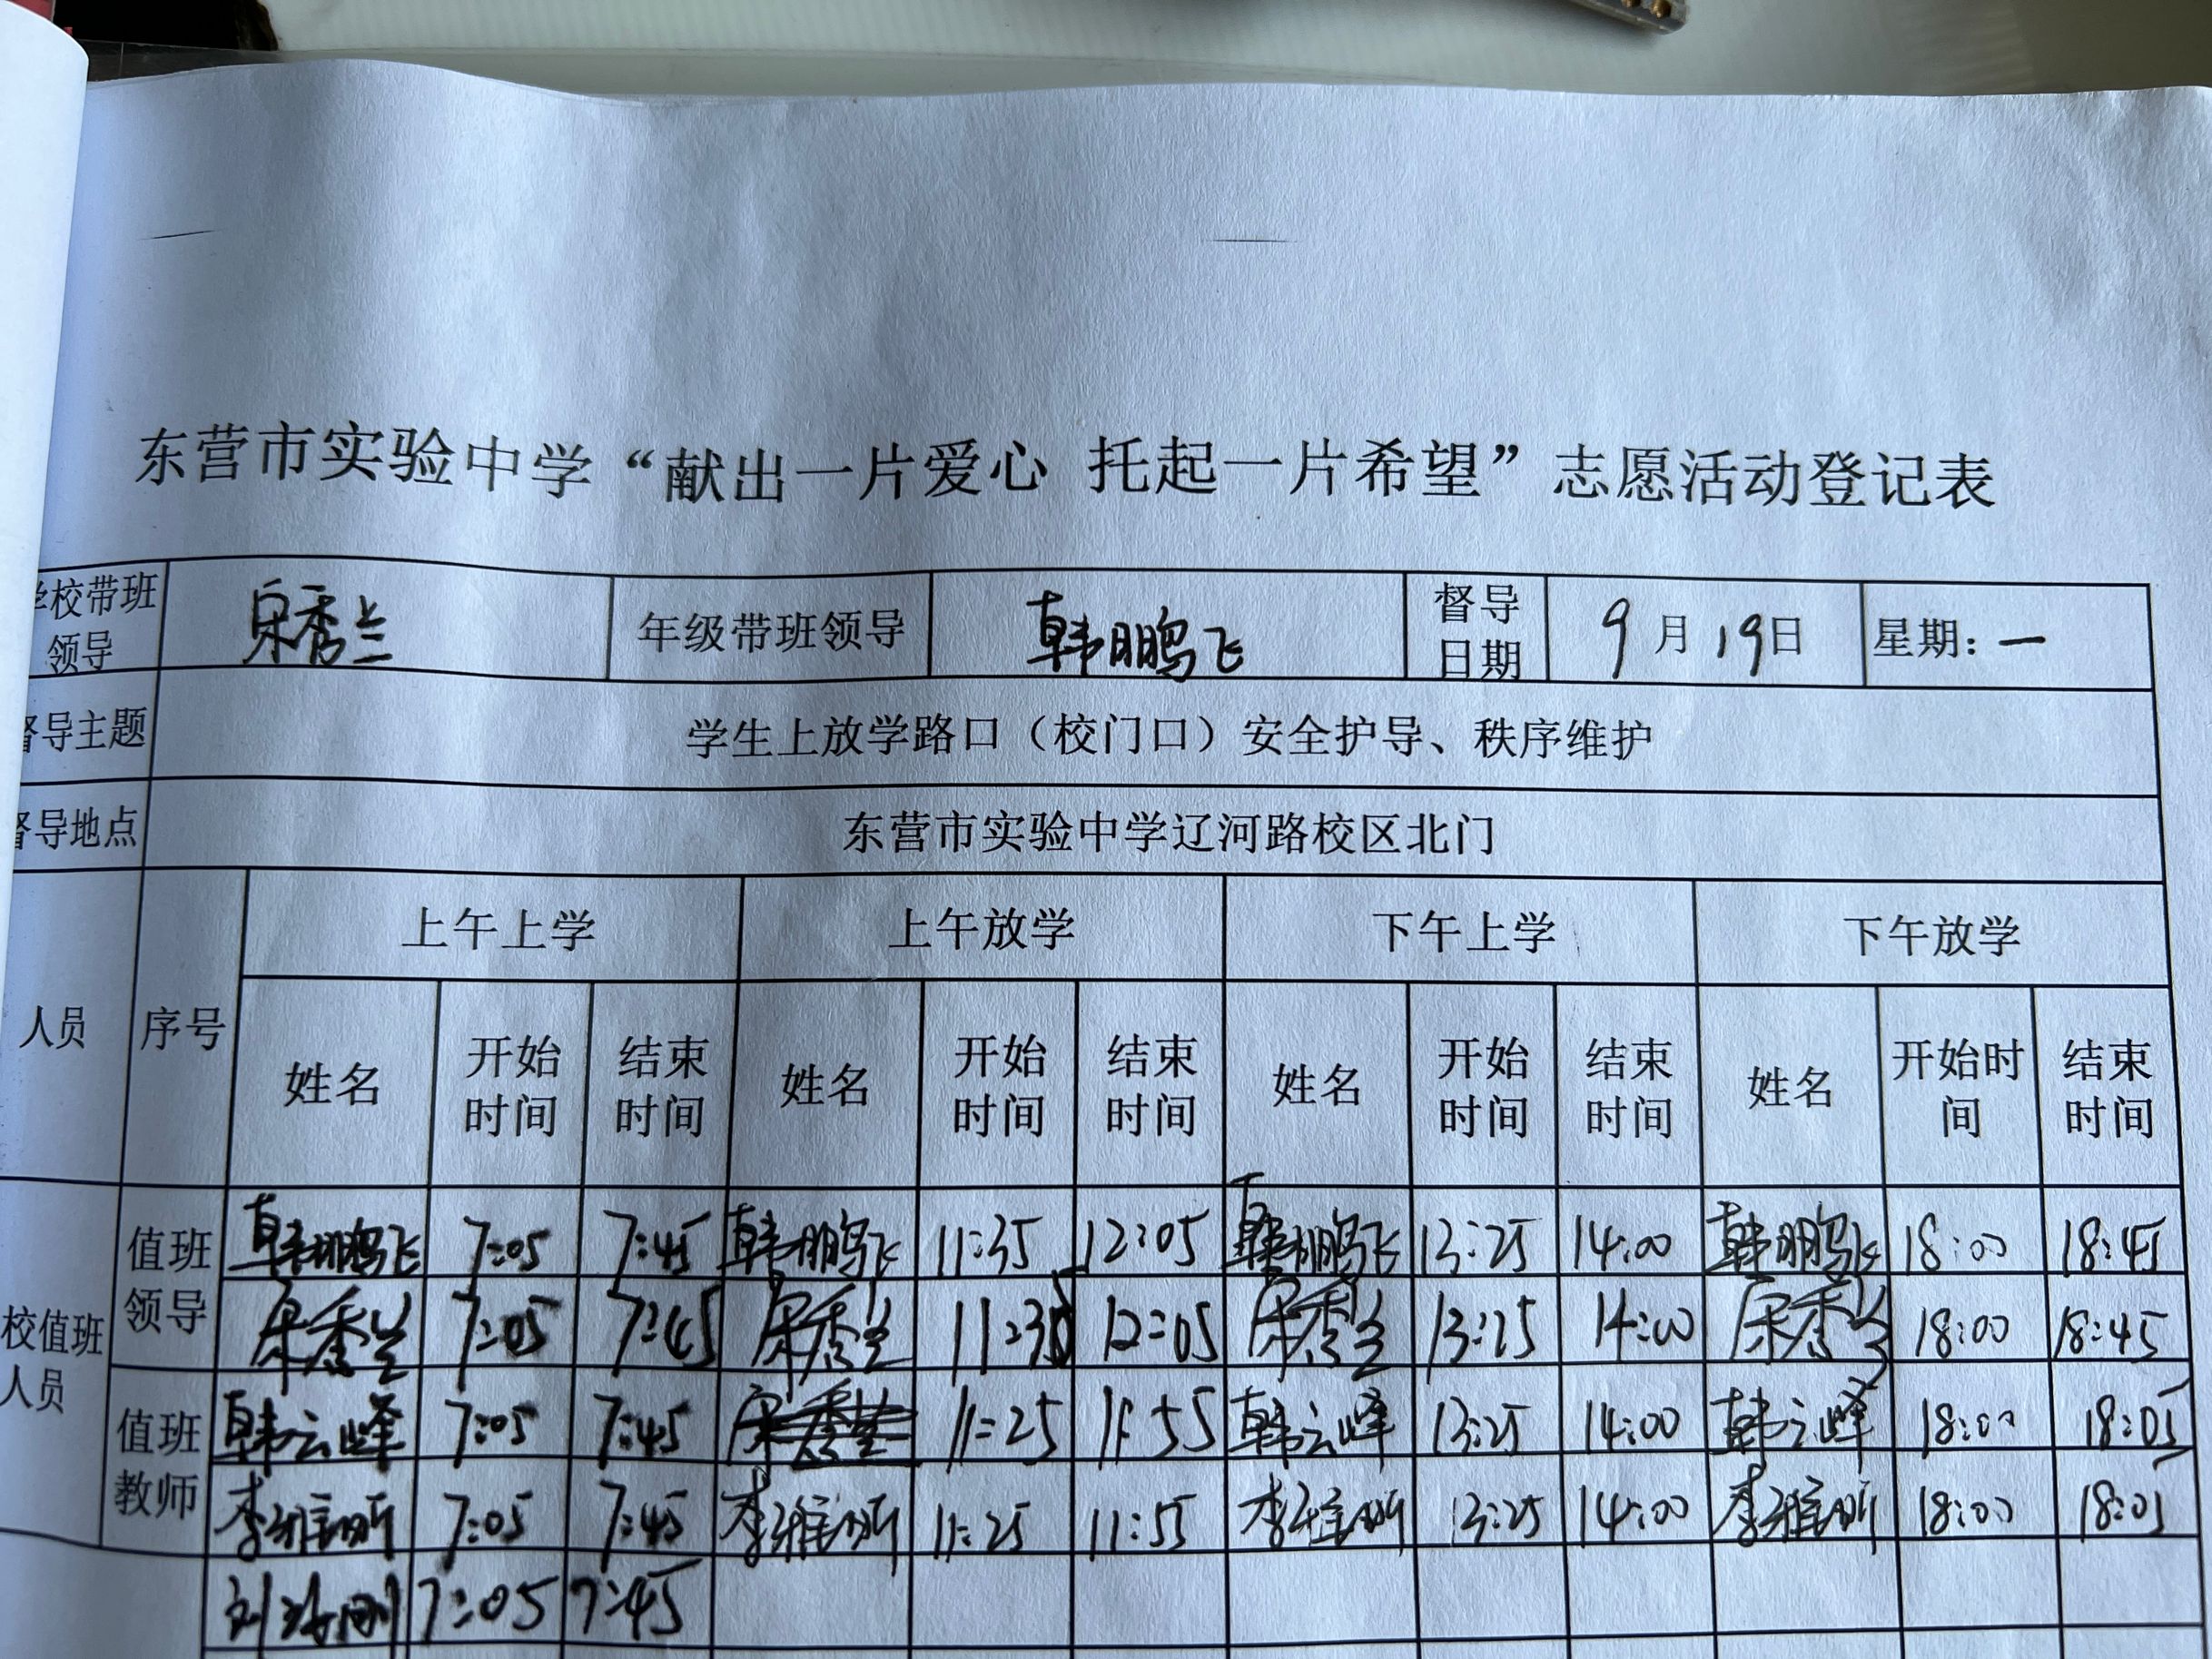 东营市实验中学“献出一片爱心 托起一片希望”志愿活动登记表
学校带班领导 宋秀兰 年级带班领导 韩鹏飞 督导日期 9月19日 星期：一
督导主题 学生上放学路口（校门口）安全护导、秩序维护
督导地点 东营市实验中学辽河路校区北门
人员 序号 上午上学 上午放学 下午上学 下午放学
姓名 开始时间 结束时间 姓名 开始时间 结束时间 姓名 开始时间 结束时间 姓名 开始时间 结束时间
校值班人员 值班领导 韩鹏飞 7:05 7:45 韩鹏飞 11:35 12:05 韩鹏飞 13:25 14:00 韩鹏飞 18:00 18:45
宋秀兰 7:05 7:45 宋秀兰 11:35 12:05 宋秀兰 13:25 14:00 宋秀兰 18:00 18:45
值班教师 韩云峰 7:05 7:45 11:25 11:55 韩云峰 13:25 14:00 韩云峰 18:00 18:05
李雅昕 7:05 7:45 李雅昕 11:25 11:55 李雅昕 13:25 14:00 李雅昕 18:00 18:05
7:05 7:45